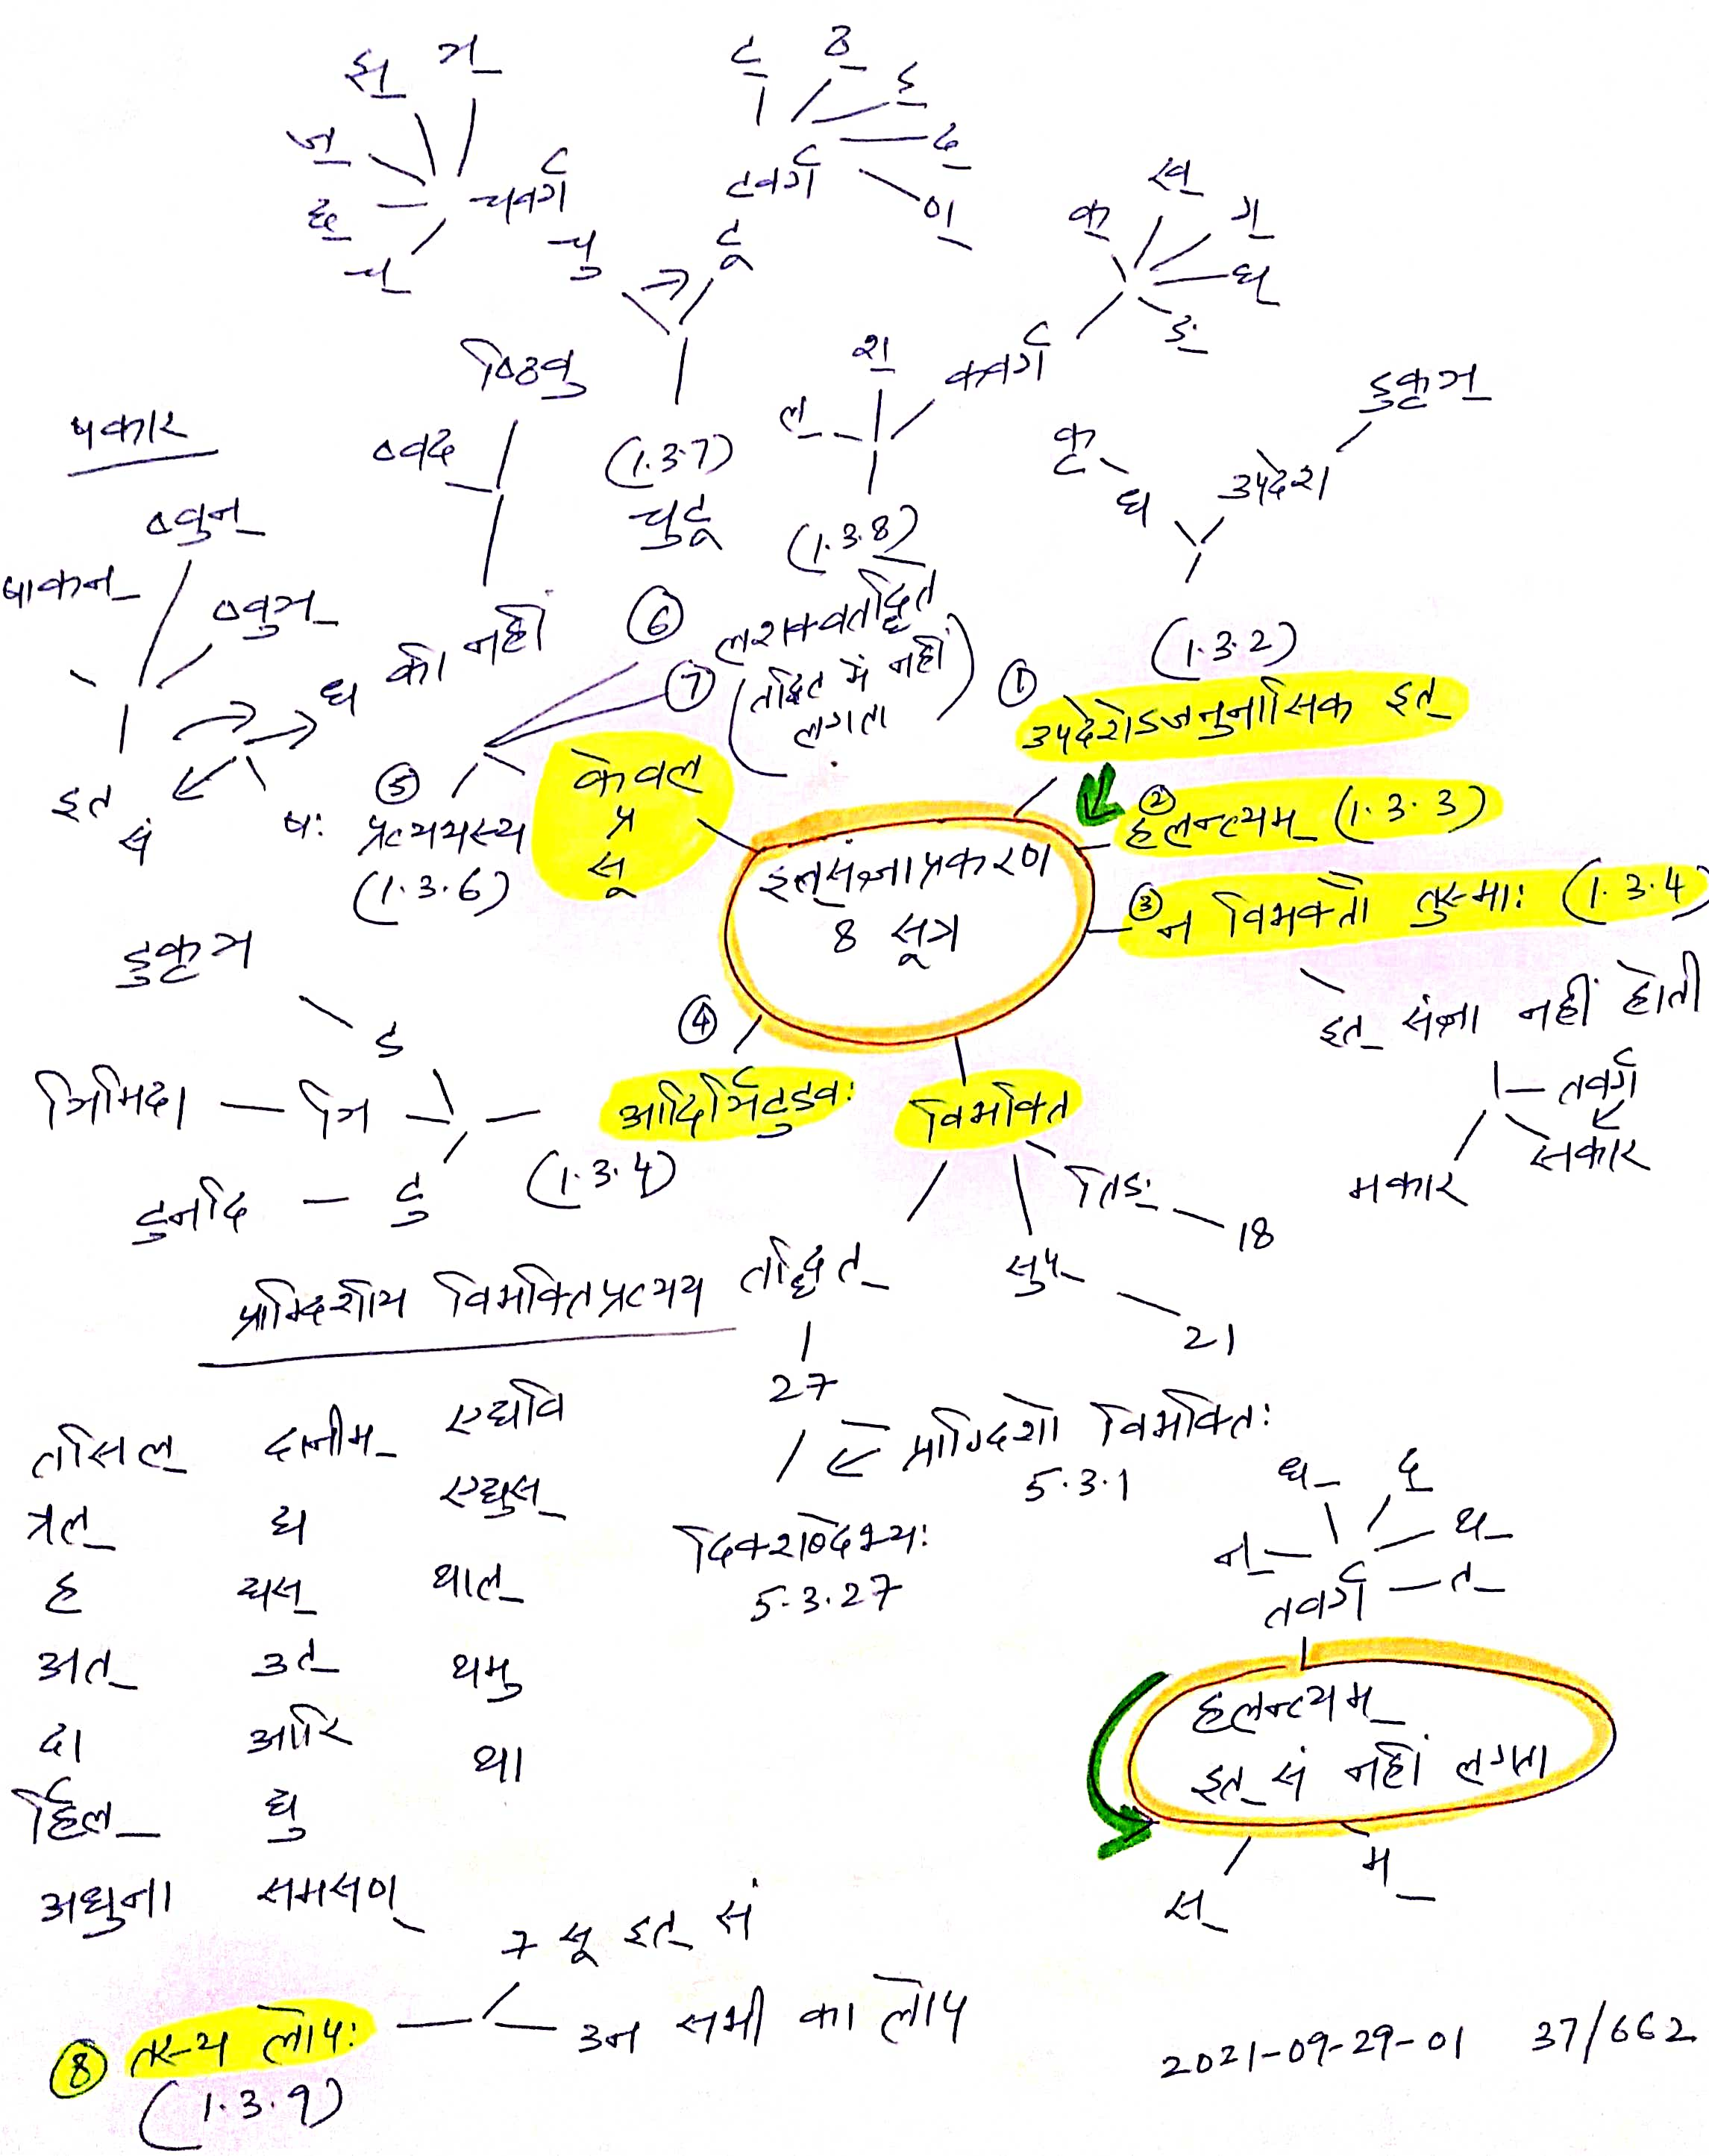 झ्
ञ्
ज्
छ्
च्
चवर्ग
चु
ट्
ठ्
ड्
ढ्
ण्
टवर्ग
टू
(1.3.7)
चुटू
क्
ख्
ग्
घ्
ङ्
कवर्ग
श
ल्
(1.3.8)
लशक्वतद्धिते
(तद्धित में नहीं
लगता)
डुकृञ्
उपदेश
कृ
ध
(1.3.2)
① उपदेशेऽजनुनासिक इत्
② हलन्त्यम् (1.3.3)
③ न विभक्तौ तुस्माः (1.3.4)
इत् संज्ञा नहीं होती
तवर्ग
सकार
मकार
षकार
ष्वुन्
षाकन्
ष्वुञ्
ष्ठिवु
ष्वद
ध को नहीं
इत्
सं
षः
⑤
प्रत्ययस्य
(1.3.6)
⑥
⑦
केवल
प्र
सू
इत्संज्ञाप्रकरण
8 सूत्र
④
आदिर्ञिटुडवः
(1.3.4)
डुकृञ
डु
ञिमिदा — ञि
टुनदि — टु
विभक्ति
तिङ् 18
सुप् 21
तद्धित्
27
प्राग्दिशो विभक्तिः
5.3.1
दिक्शब्देभ्यः
5.3.27
प्राग्दिशीय विभक्तिप्रत्यय
तसिल् दानीम् एद्यवि
त्रल् द्य एद्युस्
ह द्यस् थाल्
अत् उत् थमु
दा आरि था
र्हिल् द्यु
अधुना समसण्
ध्
द्
थ्
न्
त्
तवर्ग
हलन्त्यम्
इत् सं नहीं लगता
स्
म्
7 सू इत् सं
⑧ तस्य लोपः
उन सभी का लोप
(1.3.9)
2021-09-29-01 37/662